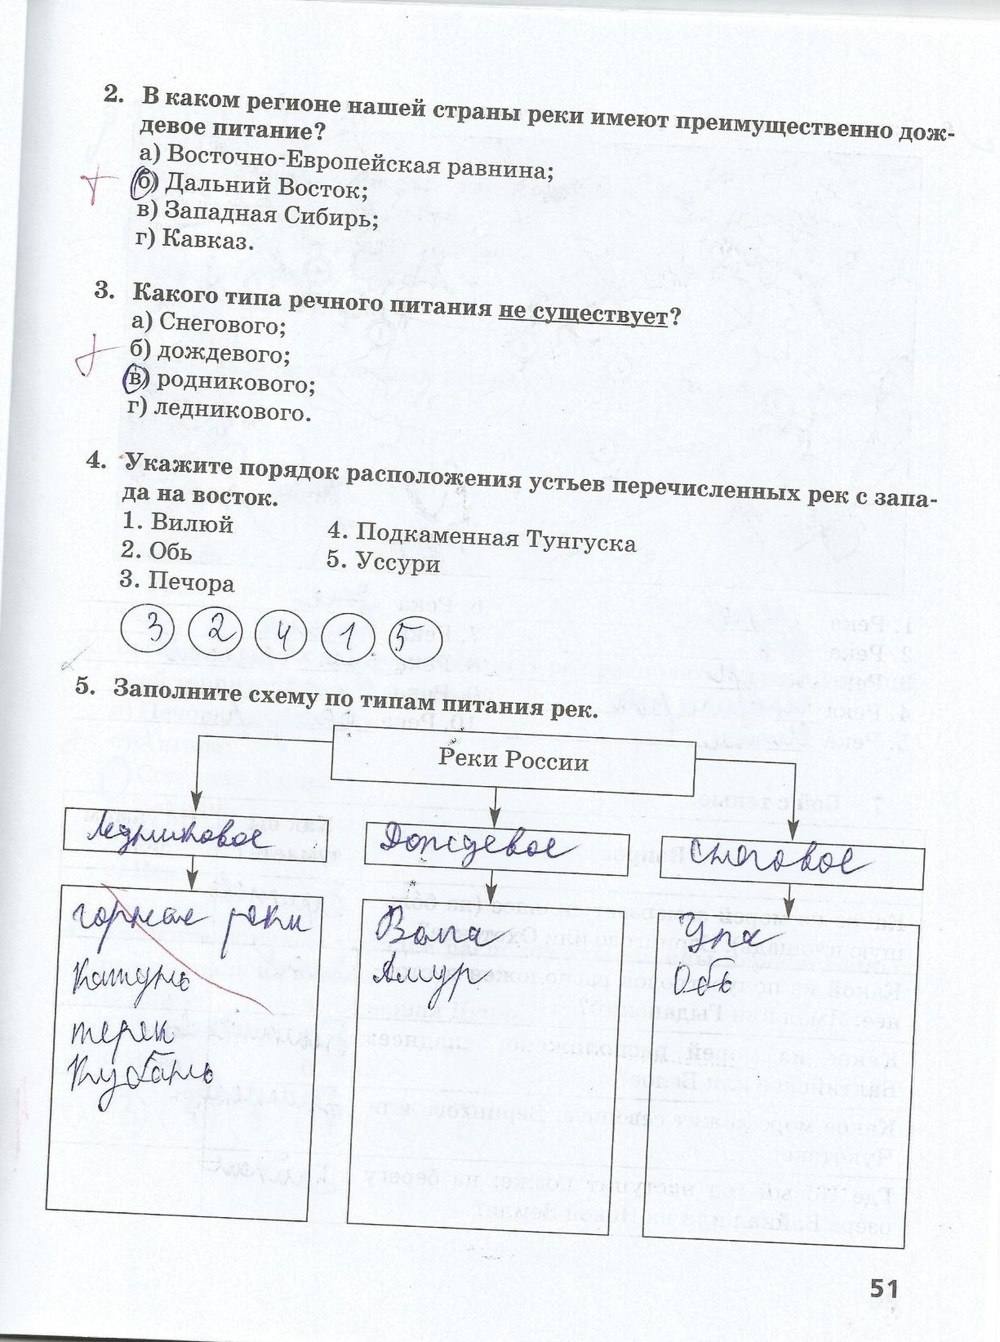 2. В каком регионе нашей страны реки имеют преимущественно дож-
девое питание?
а) Восточно-Европейская равнина;
б) Дальний Восток;
в) Западная Сибирь;
г) Кавказ.
3. Какого типа речного питания не существует?
а) Снегового;
б) дождевого;
в) родникового;
г) ледникового.
4. Укажите порядок расположения устьев перечисленных рек с запа-
да на восток.
1. Вилюй
2. Обь
3. Печора
4. Подкаменная Тунгуска
5. Уссури
3 2 4 1 5
5. Заполните схему по типам питания рек.
Реки России
Ледниковое
Дождевое
Снеговое
горные реки
Катунь
терек
Кубань
Волга
Амур
Обь
51